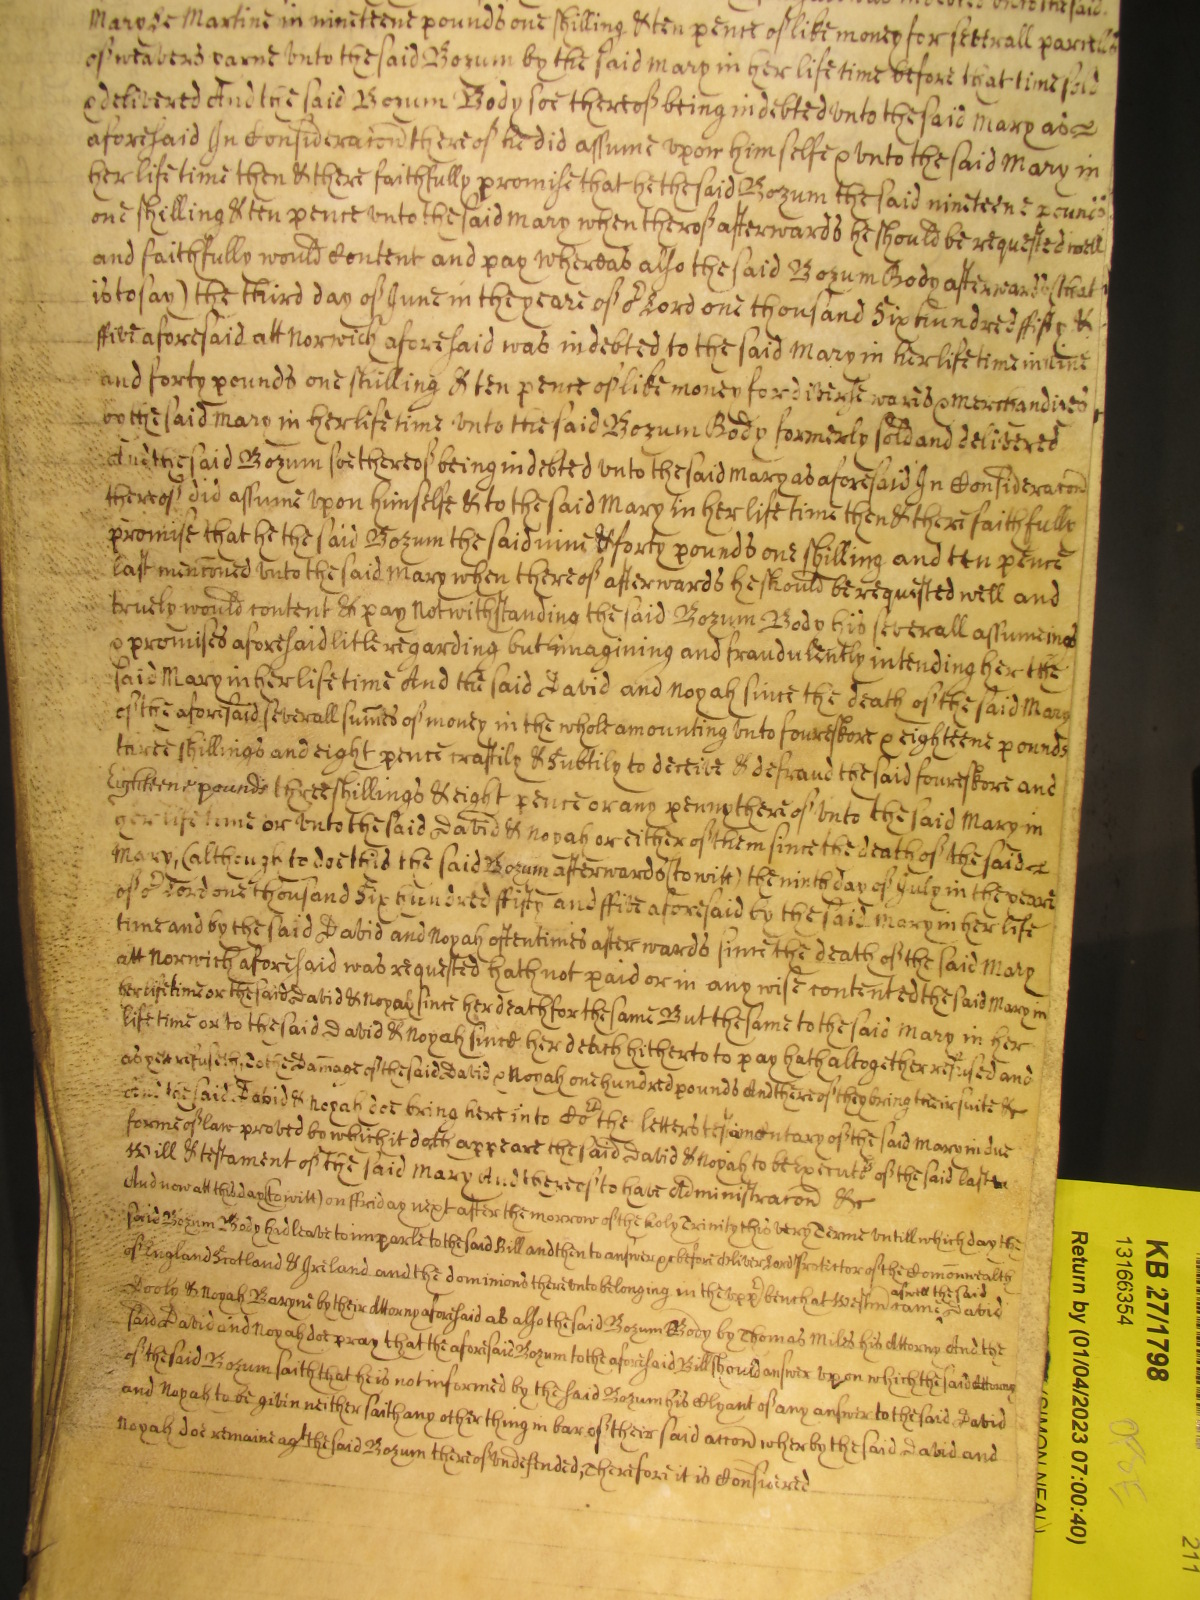 indebted unto the said
Mary Le Martine in nineteene pounds one shilling & ten pence of like money for severall parcells
of weavers yarne unto the said Bozum by the said Mary in her life time before that time sold
& delivered And the said Bozum Body soe thereof being indebted unto the said Mary as
aforesaid In Consideracon thereof he did assume upon himselfe & unto the said Mary in
her life time then & there faithfully promise that he the said Bozum the said nineteene pounds
one shilling & ten pence unto the said Mary when therof afterwards he should be requested well
and faithfully would Content and pay Whereas also the said Bozum Body afterwards (that
is to say) the third day of June in the yeare of or Lord one thousand Six hundred fifty &
ffive aforesaid att Norwich aforesaid was indebted to the said Mary in her life time in nine
and forty pounds one shilling & ten pence of like money for diverse wares & merchandizes
by the said Mary in her life time unto the said Bozum Body formerly sold and delivered
And the said Bozum soe thereof being indebted unto the said Mary as aforesaid In Consideracon
thereof did assume upon himselfe & to the said Mary in her life time then & there faithfully
promise that he the said Bozum the said nine & forty pounds one shilling and ten pence
last menconed unto the said Mary when thereof afterwards he should be requested well and
truely would content & pay Notwithstanding the said Bozum Body his severall assumeings
& promises aforesaid litle regarding but imagining and fraudulently intending her the
said Mary in her life time And the said David and Noyah since the death of the said Mary
of the aforesaid severall summes of money in the whole amounting unto foureskore & eighteene pounds
three shillings and eight pence craftily & Subtily to deceive & defraud the said foureskore and
Eighteene pounds three shillings & eight pence or any penny thereof unto the said Mary in
her life time or unto the said David & Noyah or either of them since the death of the said
Mary, (although to doe this the said Bozum afterwards (to witt) the ninth day of July in the yeare
of or Lord one thousand Six hundred ffifty and ffive aforesaid by the said Mary in her life
time and by the said David and Noyah oftentimes afterwards since the death of the said Mary
att Norwich aforesaid was requested hath not paid or in any wise contented the said Mary in
her life time or the said David & Noyah since her death for the same But the same to the said Mary in her
life time or to the said David & Noyah since her death hitherto to pay hath altogether refused and
as yet refuseth, To the Damage of the said David & Noyah one hundred pounds And thereof they bring their suite &c
And the said David & Noyah doe bring here into Cort the letters testamentary of the said Mary in due
forme of law proved by which it doth appeare the said David & Noyah to be Executrs of the said last
Will & testament of the said Mary And thereof to have Administracon &c
And now att this day (to witt) on ffriday next after the morrow of the holy Trinity this very Terme untill which day the
said Bozum Body had leave to imparle to the said Bill and then to answer &c before Oliver Lord Protector of the Comonwealth
of England Scotland & Ireland and the dominions thereunto belonging in the uppr bench at Westm came aswell the said David
Dooly & Noyah Baryne by their Attorny aforesaid as also the said Bozum Body by Thomas Miles his Attorny And the
said David and Noyah doe pray that the aforesaid Bozum to the aforesaid Bill should answer upon which the said Attorny
of the said Bozum saith that he is not informed by the said Bozum his Clyant of any answer to the said David
and Noyah to be given neither saith any other thing in bar of their said accon wherby the said David and
Noyah doe remaine agt the said Bozum thereof undefended, Therefore it is Considered
KB 27/1798
13166354
Return by (01/04/2023 07:00:40)
(SIMON NEAL)
211